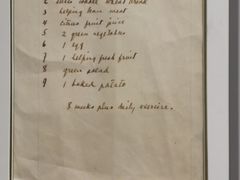 2 slices whole wheat bread
3 helping lean meat
4 citrus fruit juice
5 2 green vegetables
6 1 egg
7 1 helping fresh fruit
8 green salad
9 1 baked potato
8 weeks plus daily exercise.